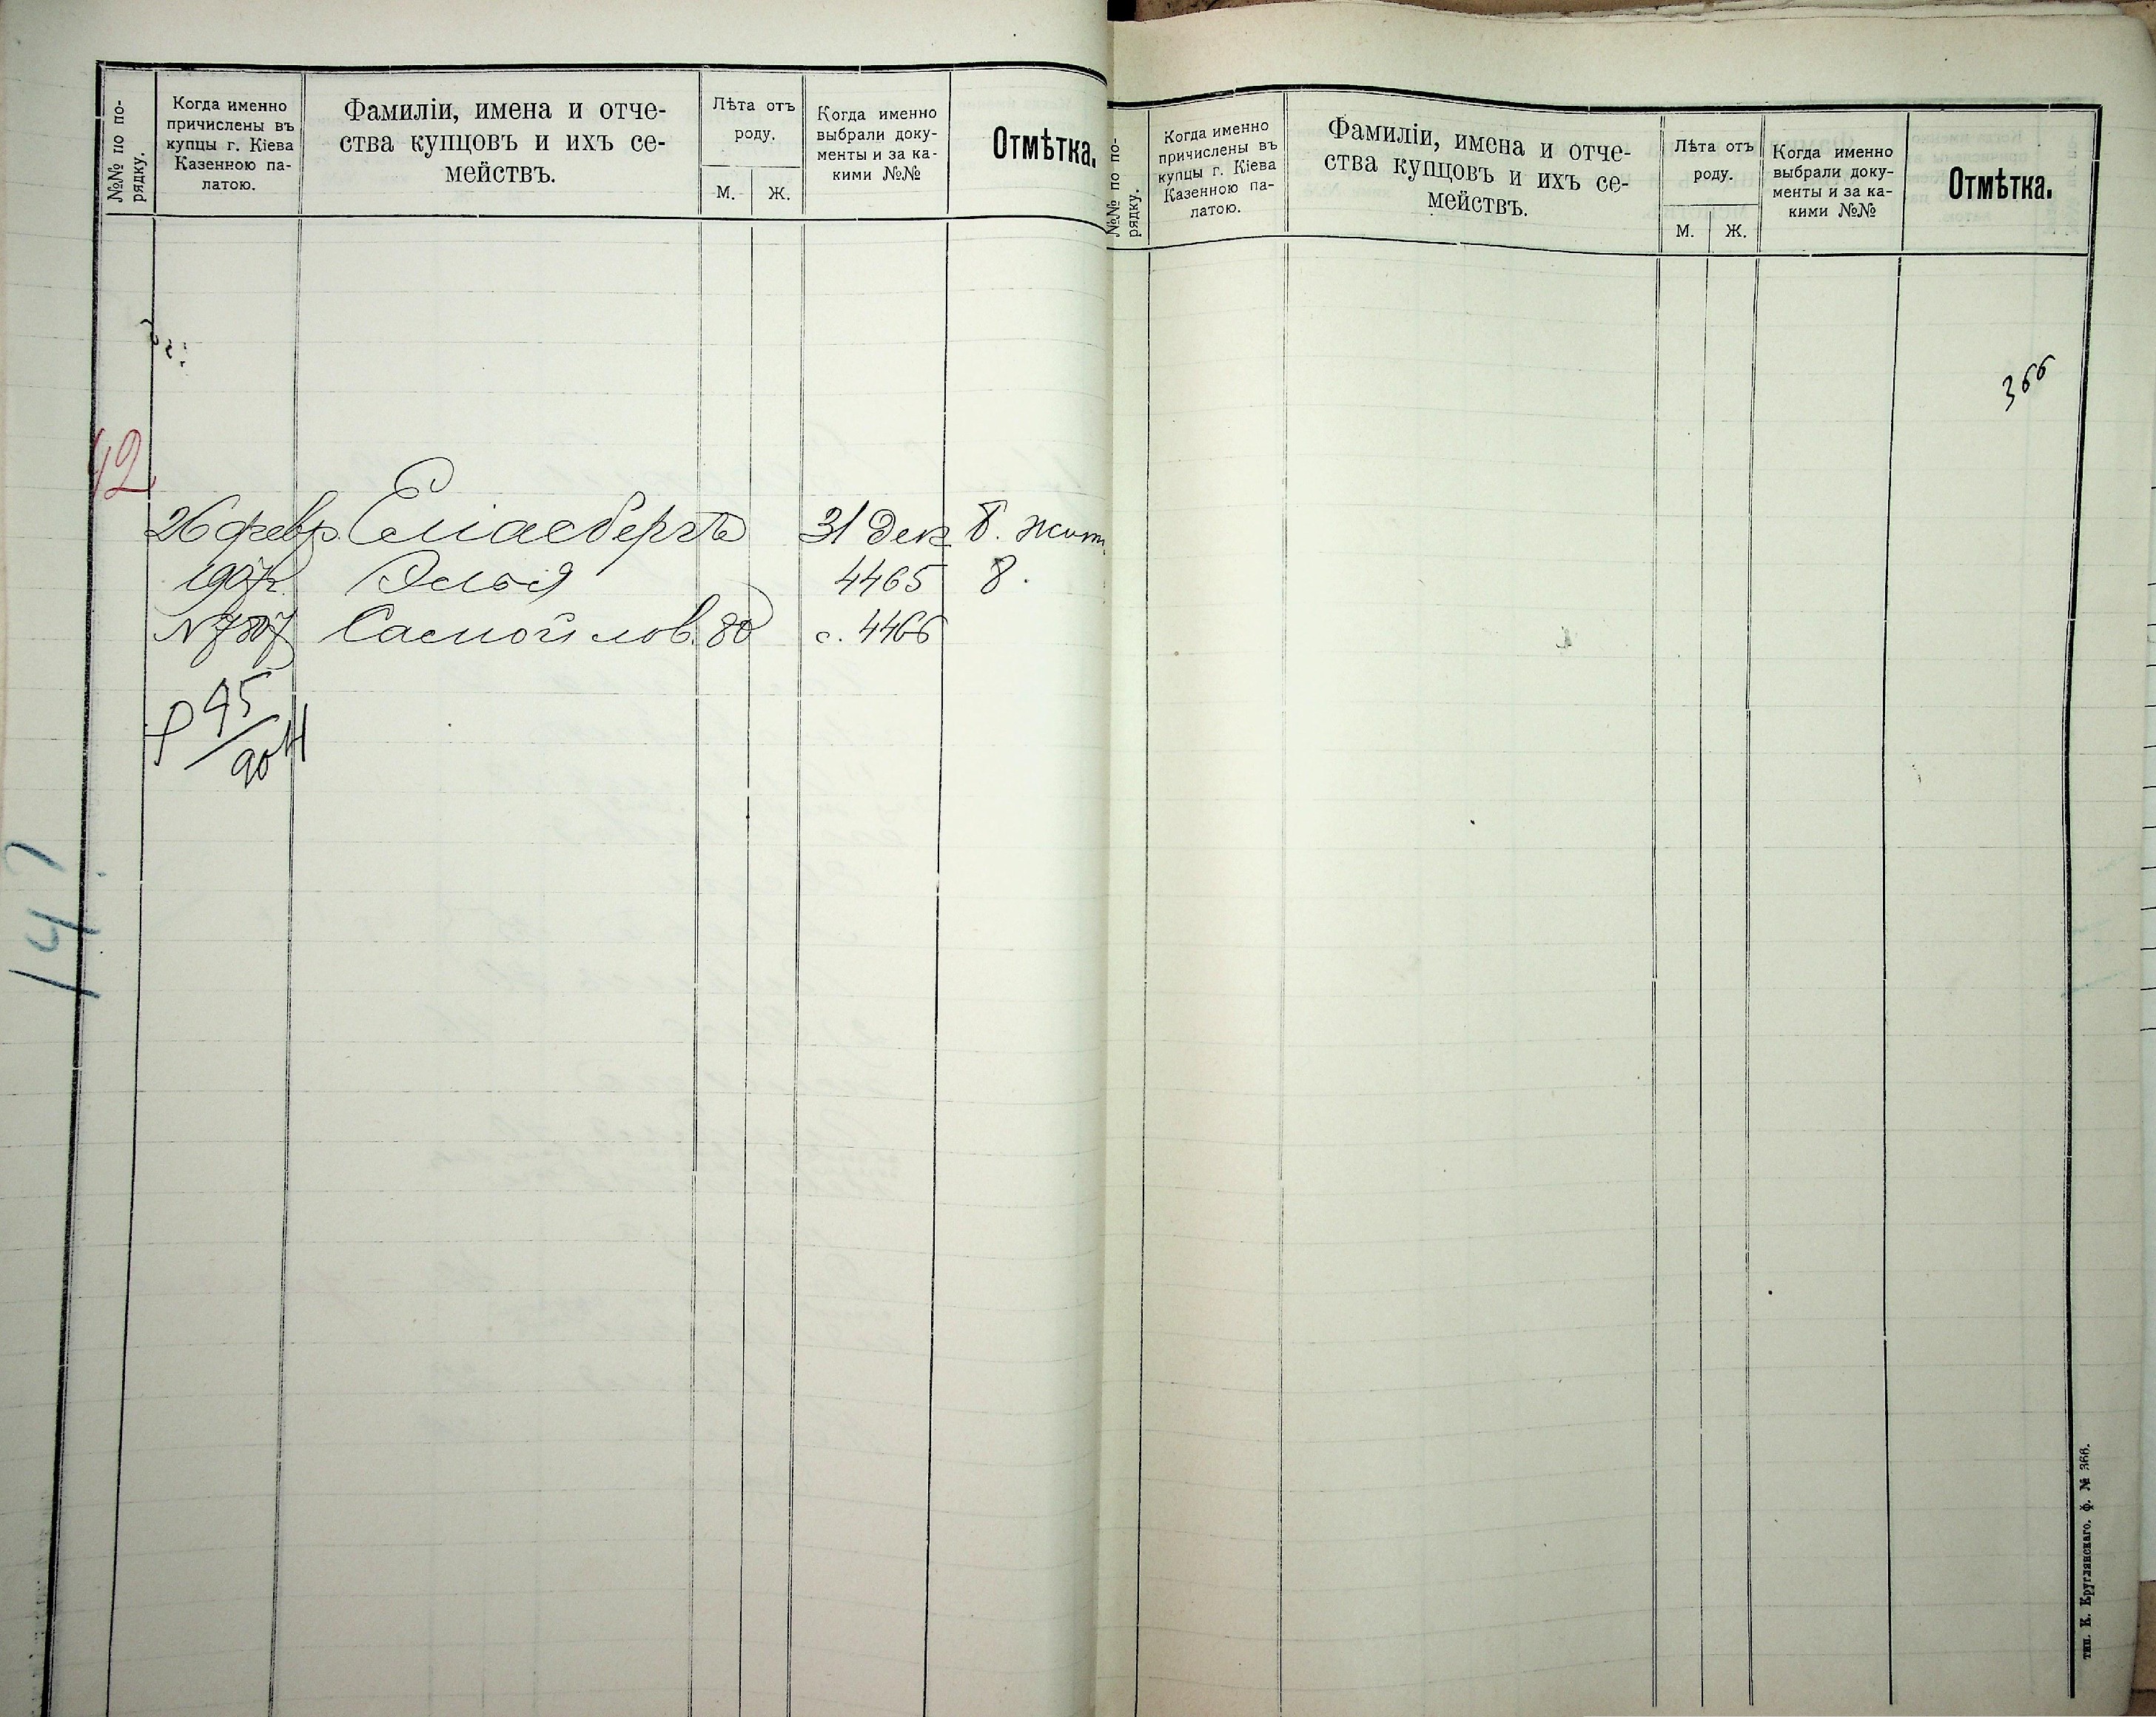 №№ по по-
рядку.
Когда именно
причислены въ
купцы г. Кіева
Казенною па-
латою.
Фамиліи, имена и отче-
ства купцовъ и ихъ се-
мействъ.
Лѣта отъ
роду.
М.
Ж.
Когда именно
выбрали доку-
менты и за ка-
кими №№
Отмѣтка.
42
26 февр. Еліасбергъ 31 Дек. Б. Жит.
1907 г. Элья 4465 8.
Самойлов. 80 с. 4466
45
90
147
№№ по по-
рядку.
Когда именно
причислены въ
купцы г. Кіева
Казенною па-
латою.
Фамиліи, имена и отче-
ства купцовъ и ихъ се-
мействъ.
Лѣта отъ
роду.
М.
Ж.
Когда именно
выбрали доку-
менты и за ка-
кими №№
Отмѣтка.
366
тип. К. Круглянскаго. ф. № 366.